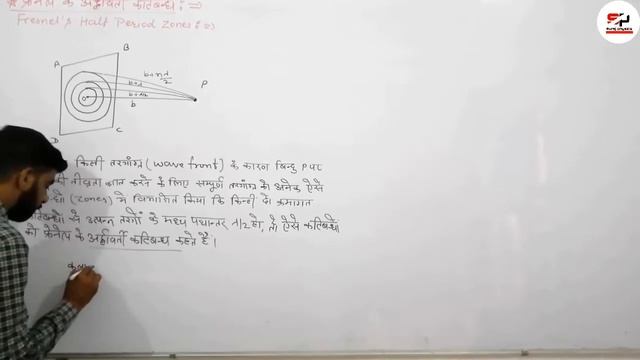 * फ्रेनेल के अर्द्धावर्ती कटिबन्ध : ⇒
Fresnel's Half Period Zones: ⇒
A
B
b+nλ/2
b+λ
b+λ/2
b
O
P
D
C
किसी तरंगाग्र (wave front) के कारण बिन्दु P पर
तीव्रता ज्ञात करने के लिए सम्पूर्ण तरंगाग्र को अनेक ऐसे
(zones) में विभाजित किया कि किन्हीं दो क्रमागत
से उत्पन्न तरंगों के मध्य पथान्तर λ/2 हो, तो ऐसे कटिबंधो
को फ्रेनेल के अर्द्धावर्ती कटिबन्ध कहते है।